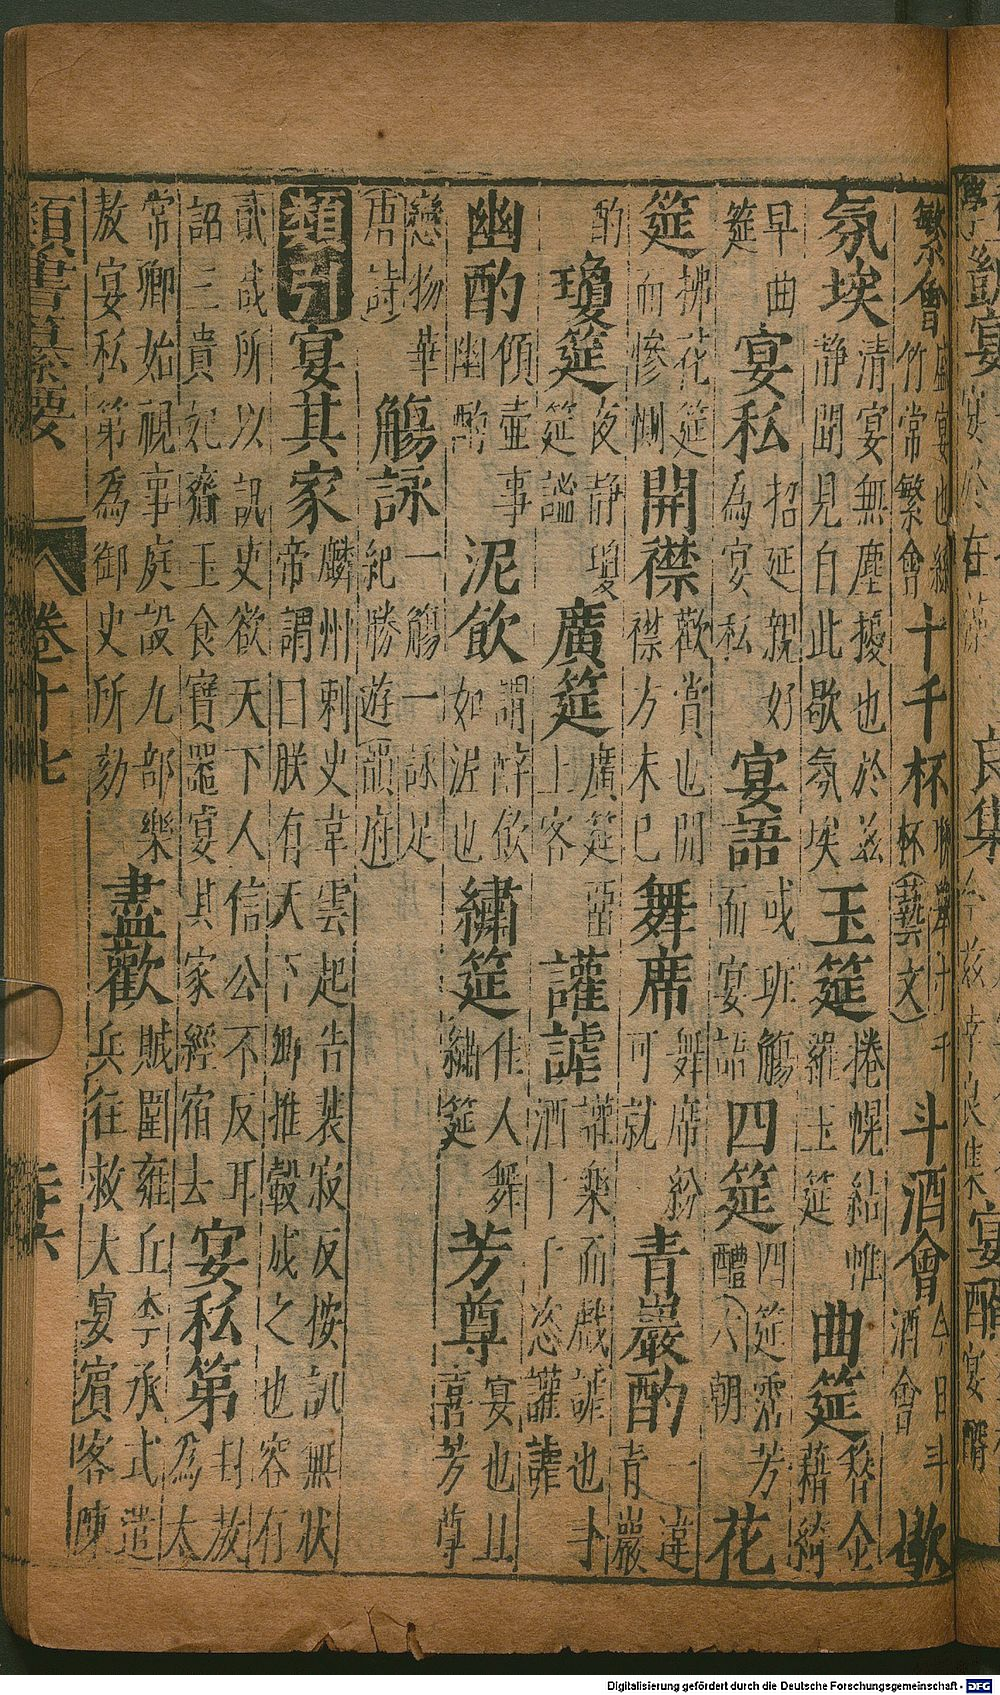 繁會盛宴也絲竹常繁會十千杯聯舉十千杯(藝文)斗酒會今日斗酒會歊
氛埃清宴無塵擾也於茲靜聞見自此歇氛埃玉筵捲幌結帷羅玉筵曲筵替金藉綺
筵早曲宴私招延親好為宴私宴語或班觴而宴語四筵四筵霑芳醴(六朝)花
筵拂花筵而慘惻開襟歡賞也開襟方未已舞席舞席紛可就青巖酌一違青巖
酌瓊筵夜靜瓊筵謐廣筵廣筵上客讙謔讙樂而戲謔也斗酒十千恣讙謔
幽酌傾壺事幽酌泥飲謂醉飲如泥也繡筵佳人舞繡筵芳尊宴也且喜芳尊
戀物華(唐詩)觴詠一觴一詠足紀勝遊(韻府)
類引宴其家麟州刺史韋雲起告裴寂反按訊無狀帝謂曰朕有天下卿推轂成之也容有
貳哉所以訊吏欲天下人信公不反耳詔三貴妃齎玉食寶器宴其家經宿去宴私第封敖為太
常卿始視事庭設九部樂敖宴私第為御史所劾盡歡賊圍雍丘李承式遣兵往救大宴賓客陳
類書纂要
卷十七
Digitalisierung gefördert durch die Deutsche Forschungsgemeinschaft - DFG